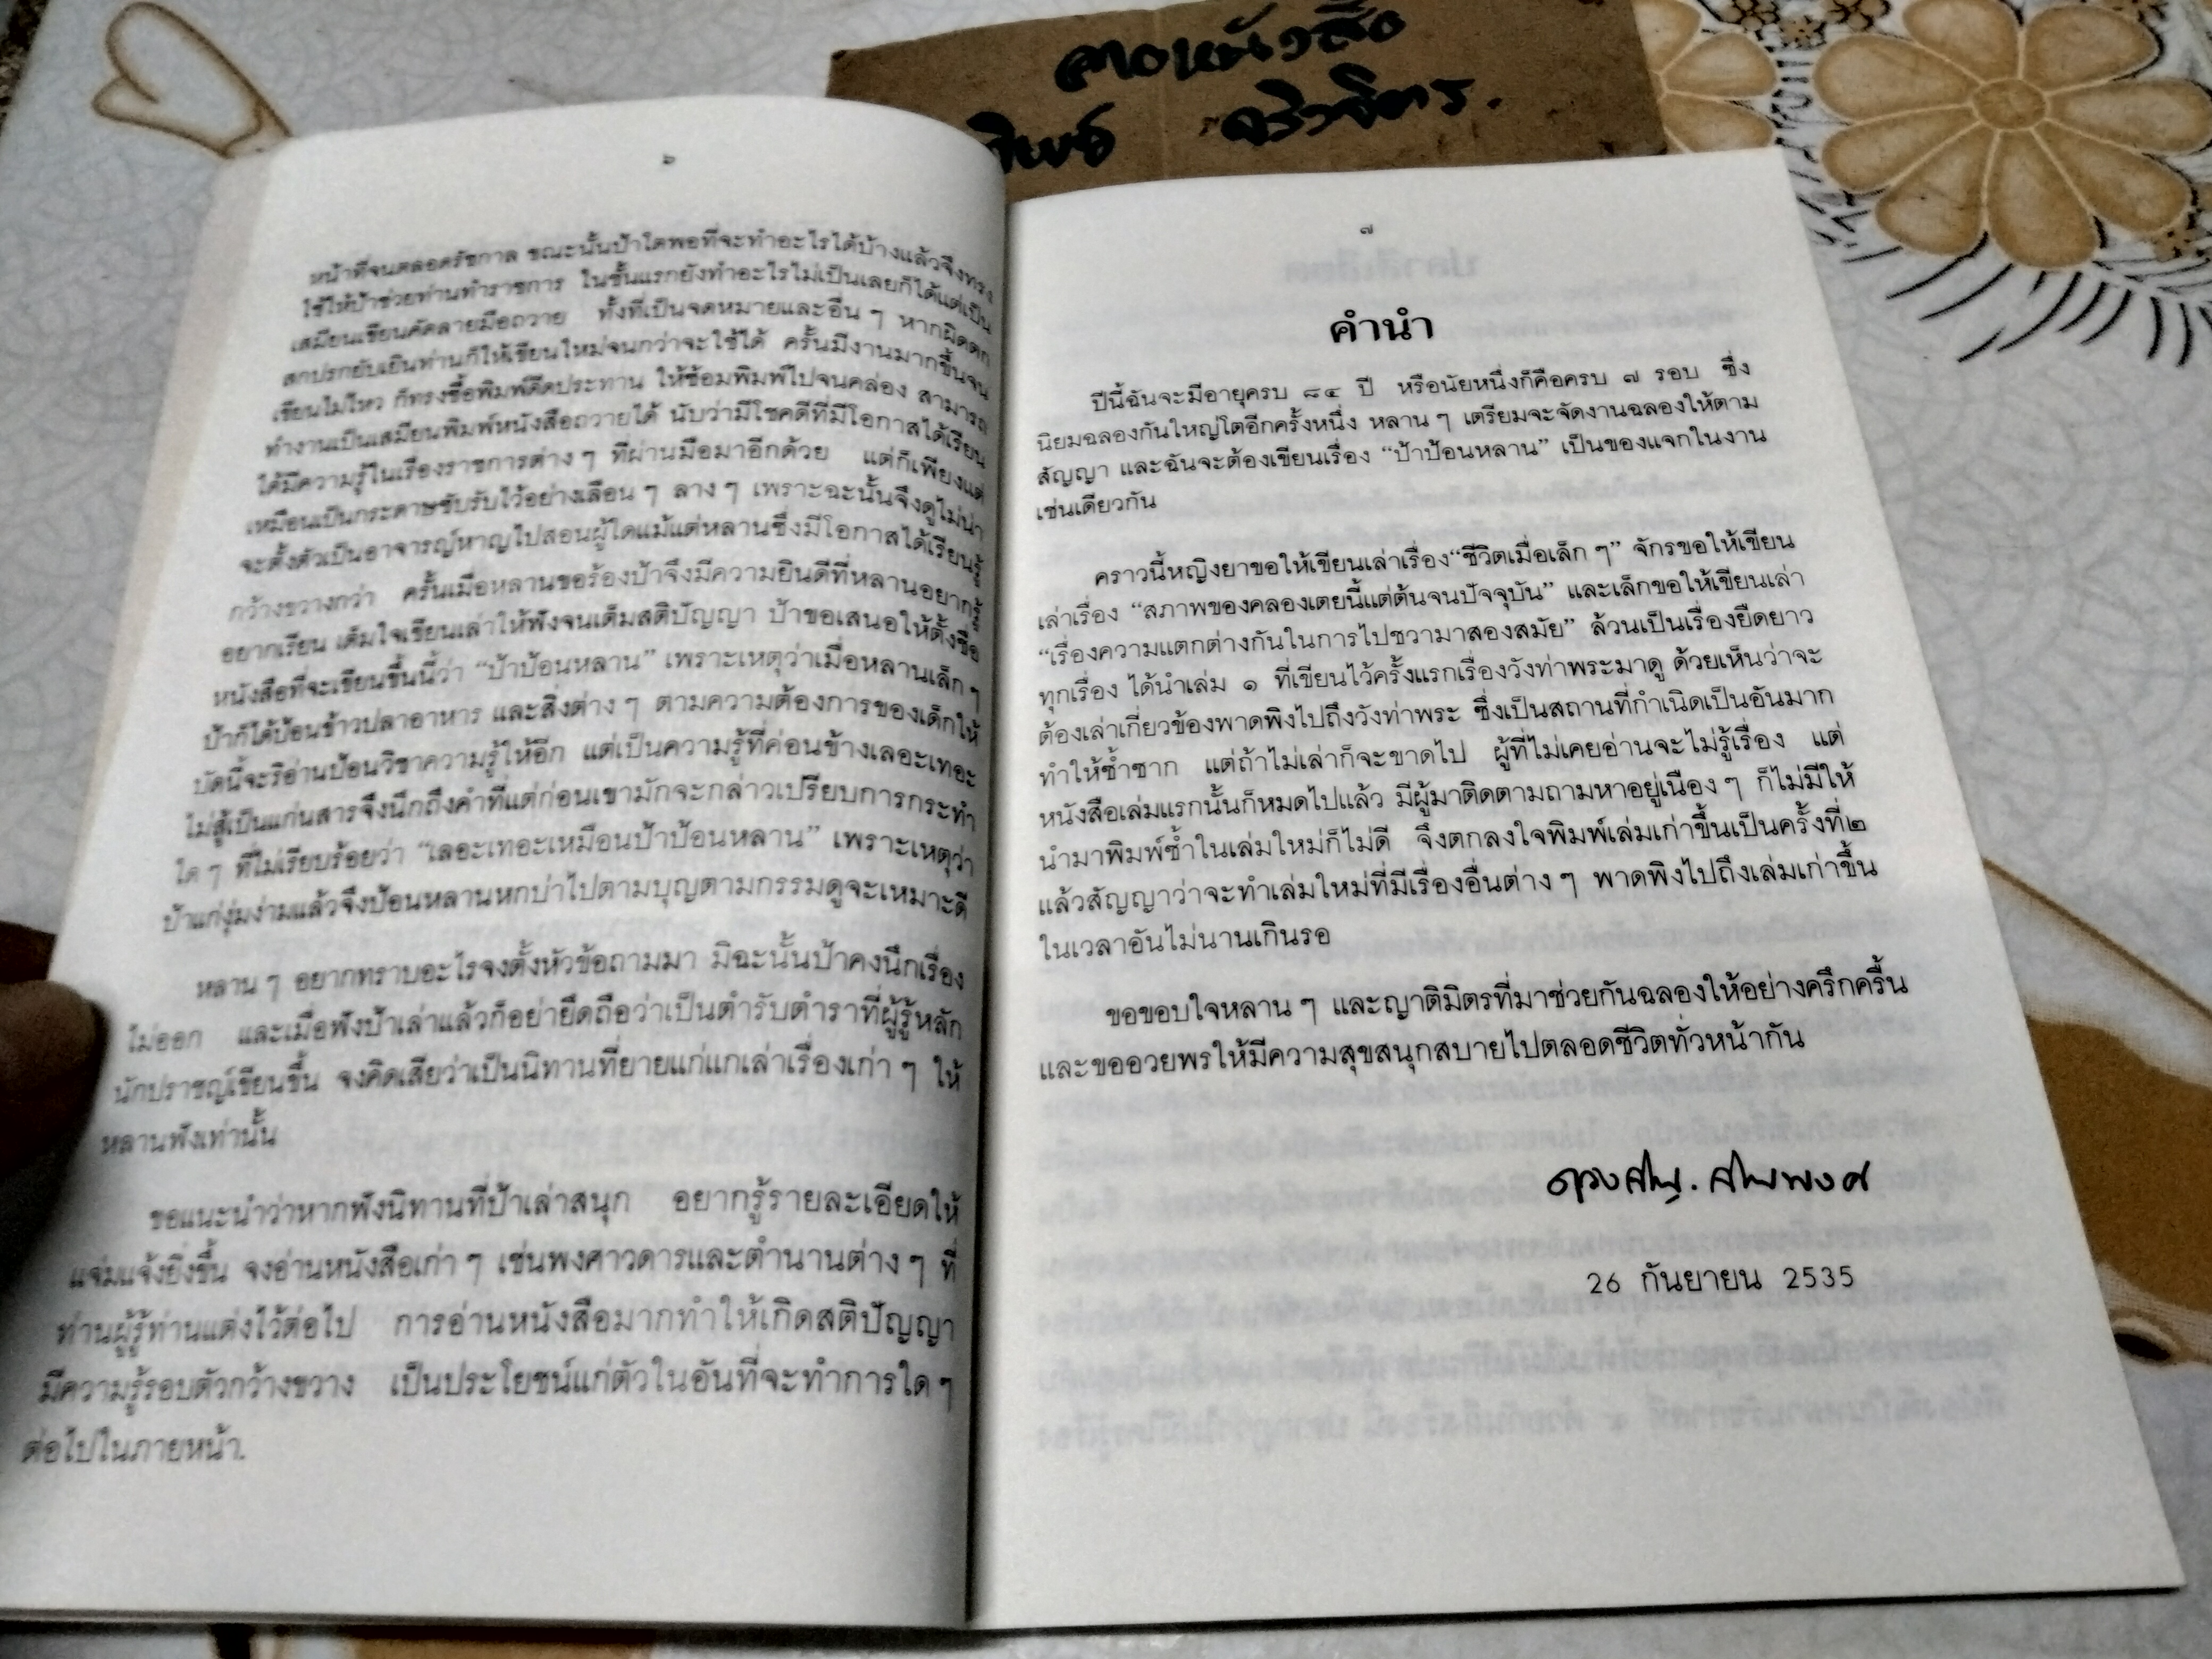 ลายหนังสือ
ทิพย์ จริวจิตร.
๖
หน้าที่จนตลอดรัชกาล ขณะนั้นป้าโตพอที่จะทำอะไรได้บ้างแล้วจึงทรง
ใช้ให้ป้าช่วยท่านทำราชการ ในชั้นแรกยังทำอะไรไม่เป็นเลยก็ได้แต่เป็น
เสมียนเขียนคัดลายมือถวาย ทั้งที่เป็นจดหมายและอื่น ๆ หากผิดตก
สกปรกยับเยินท่านก็ให้เขียนใหม่จนกว่าจะใช้ได้ ครั้นมีงานมากขึ้นจน
เขียนไม่ไหว ก็ทรงซื้อพิมพ์ดีดประทาน ให้ซ้อมพิมพ์ไปจนคล่อง สามารถ
ทำงานเป็นเสมียนพิมพ์หนังสือถวายได้ นับว่ามีโชคดีที่มีโอกาสได้เรียน
ได้มีความรู้ในเรื่องราชการต่าง ๆ ที่ผ่านมือมาอีกด้วย แต่ก็เพียงแต่
เหมือนเป็นกระดาษซับรับไว้อย่างเลือน ๆ ลาง ๆ เพราะฉะนั้นจึงดูไม่น่า
จะตั้งตัวเป็นอาจารย์หาญไปสอนผู้ใดแม้แต่หลานซึ่งมีโอกาสได้เรียนรู้
กว้างขวางกว่า ครั้นเมื่อหลานขอร้องป้าจึงมีความยินดีที่หลานอยากรู้
อยากเรียน เต็มใจเขียนเล่าให้ฟังจนเต็มสติปัญญา ป้าขอเสนอให้ตั้งชื่อ
หนังสือที่จะเขียนขึ้นนี้ว่า “ป้าป้อนหลาน” เพราะเหตุว่าเมื่อหลานเล็ก ๆ
ป้าก็ได้ป้อนข้าวปลาอาหาร และสิ่งต่าง ๆ ตามความต้องการของเด็กให้
บัดนี้จะริอ่านป้อนวิชาความรู้ให้อีก แต่เป็นความรู้ที่ค่อนข้างเลอะเทอะ
ไม่สู้เป็นแก่นสารจึงนึกถึงคำที่แต่ก่อนเขามักจะกล่าวเปรียบการกระทำ
ใด ๆ ที่ไม่เรียบร้อยว่า “เลอะเทอะเหมือนป้าป้อนหลาน” เพราะเหตุว่า
ป้าแก่งุ่มง่ามแล้วจึงป้อนหลานหกบ่าไปตามบุญตามกรรมดูจะเหมาะดี
หลาน ๆ อยากทราบอะไรจงตั้งหัวข้อถามมา มิฉะนั้นป้าคงนึกเรื่อง
ไม่ออก และเมื่อฟังป้าเล่าแล้วก็อย่ายึดถือว่าเป็นตำรับตำราที่ผู้รู้หลัก
นักปราชญ์เขียนขึ้น จงคิดเสียว่าเป็นนิทานที่ยายแก่แกเล่าเรื่องเก่า ๆ ให้
หลานฟังเท่านั้น
ขอแนะนำว่าหากฟังนิทานที่ป้าเล่าสนุก อยากรู้รายละเอียดให้
แจ่มแจ้งยิ่งขึ้น จงอ่านหนังสือเก่า ๆ เช่นพงศาวดารและตำนานต่าง ๆ ที่
ท่านผู้รู้ท่านแต่งไว้ต่อไป การอ่านหนังสือมากทำให้เกิดสติปัญญา
มีความรู้รอบตัวกว้างขวาง เป็นประโยชน์แก่ตัวในอันที่จะทำการใด ๆ
ต่อไปในภายหน้า.
๗
คำนำ
ปีนี้ฉันจะมีอายุครบ ๘๔ ปี หรือนัยหนึ่งก็คือครบ ๗ รอบ ซึ่ง
นิยมฉลองกันใหญ่โตอีกครั้งหนึ่ง หลาน ๆ เตรียมจะจัดงานฉลองให้ตาม
สัญญา และฉันจะต้องเขียนเรื่อง “ป้าป้อนหลาน” เป็นของแจกในงาน
เช่นเดียวกัน
คราวนี้หญิงยาขอให้เขียนเล่าเรื่อง“ชีวิตเมื่อเล็ก ๆ” จักรขอให้เขียน
เล่าเรื่อง “สภาพของคลองเตยนี้แต่ต้นจนปัจจุบัน” และเล็กขอให้เขียนเล่า
“เรื่องความแตกต่างกันในการไปชวามาสองสมัย” ล้วนเป็นเรื่องยืดยาว
ทุกเรื่อง ได้นำเล่ม ๑ ที่เขียนไว้ครั้งแรกเรื่องวังท่าพระมาดู ด้วยเห็นว่าจะ
ต้องเล่าเกี่ยวข้องพาดพิงไปถึงวังท่าพระ ซึ่งเป็นสถานที่กำเนิดเป็นอันมาก
ทำให้ซ้ำซาก แต่ถ้าไม่เล่าก็จะขาดไป ผู้ที่ไม่เคยอ่านจะไม่รู้เรื่อง แต่
หนังสือเล่มแรกนั้นก็หมดไปแล้ว มีผู้มาติดตามถามหาอยู่เนือง ๆ ก็ไม่มีให้
นำมาพิมพ์ซ้ำในเล่มใหม่ก็ไม่ดี จึงตกลงใจพิมพ์เล่มเก่าขึ้นเป็นครั้งที่๒
แล้วสัญญาว่าจะทำเล่มใหม่ที่มีเรื่องอื่นต่าง ๆ พาดพิงไปถึงเล่มเก่าขึ้น
ในเวลาอันไม่นานเกินรอ
ขอขอบใจหลาน ๆ และญาติมิตรที่มาช่วยกันฉลองให้อย่างครึกครื้น
และขออวยพรให้มีความสุขสนุกสบายไปตลอดชีวิตทั่วหน้ากัน
26 กันยายน 2535